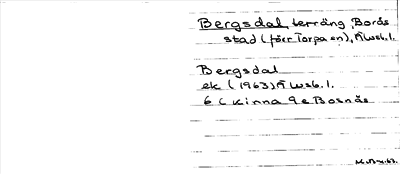 Bergsdal, terräng, Borås
stad (förr Torpa sn), Ä wsb. l.
Bergsdal
ek (1963) Ä wsb. l.
6 C Kinna 9 e Bosnäs